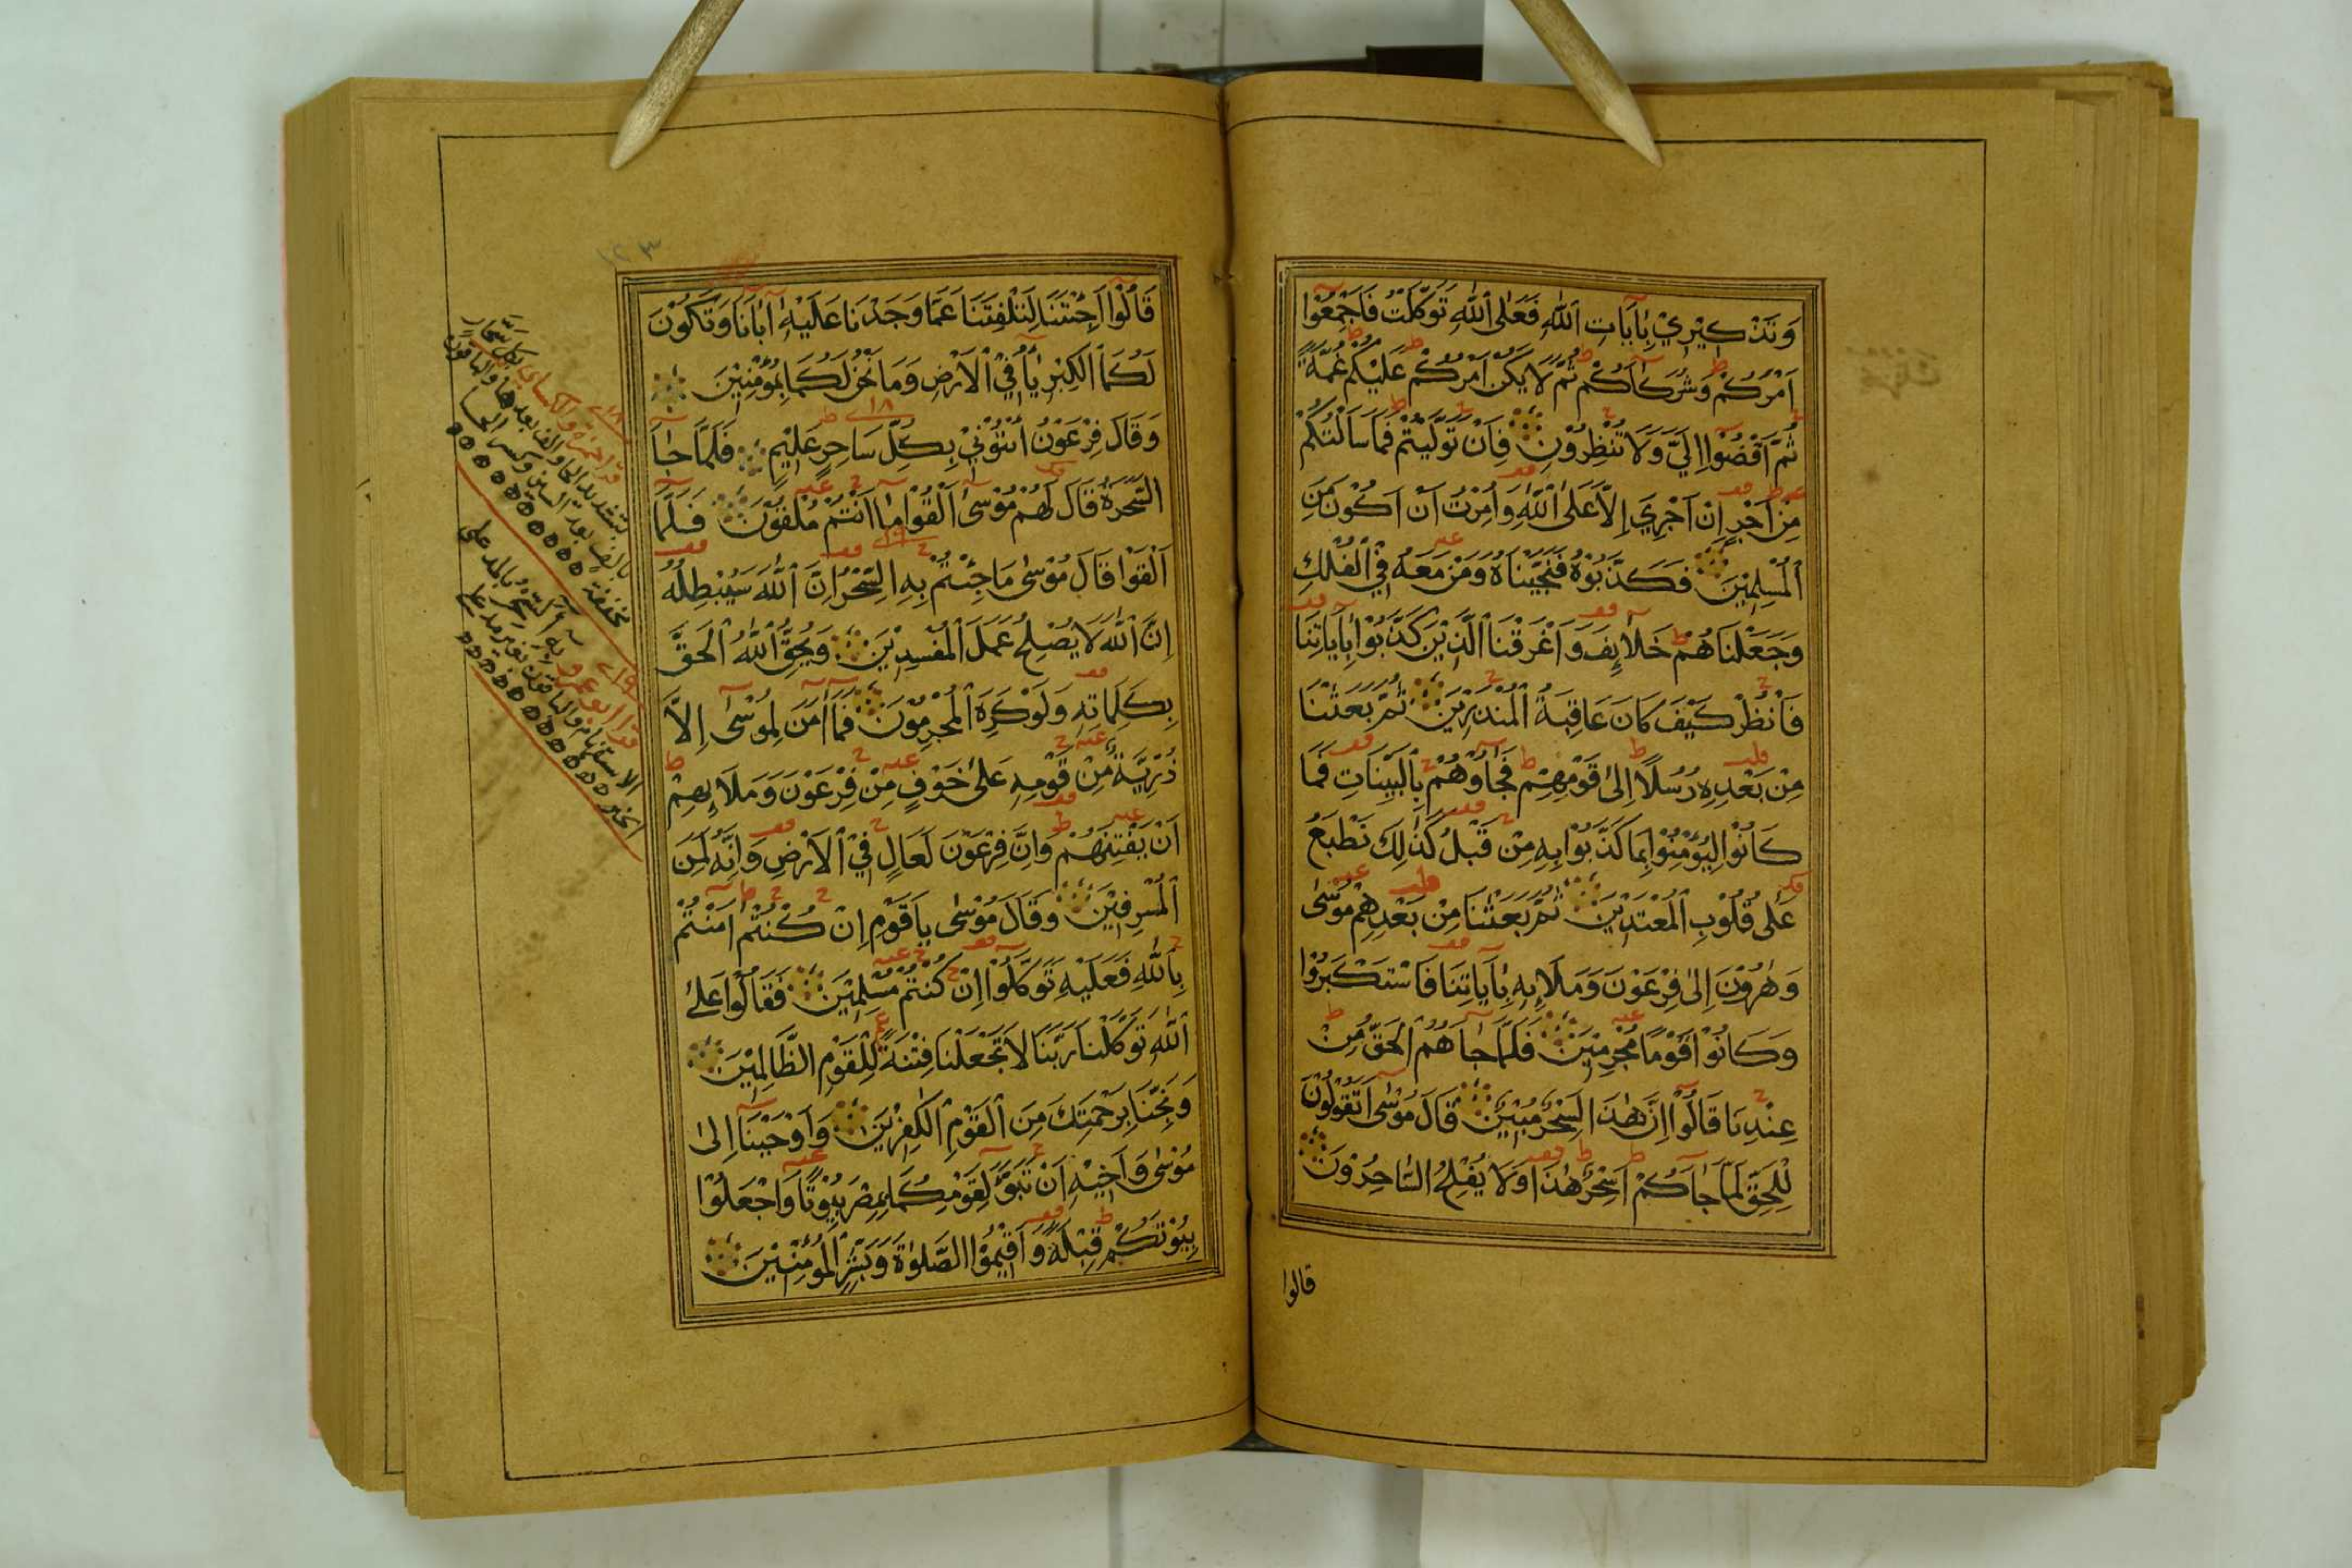 وَتَذْكِيْرِيْ بِاٰيَاتِ اللّٰهِ فَعَلَى اللّٰهِ تَوَكَّلْتُ فَاَجْمِعُوْا
اَمْرَكُمْ وَشُرَكَاَكُمْ ثُمَّ لَا يَكُنْ اَمْرُكُمْ عَلَيْكُمْ غُمَّةً
ثُمَّ اقْضُوْا اِلَيَّ وَلَا تُنْظِرُوْنِ فَاِنْ تَوَلَّيْتُمْ فَمَا سَاَلْتُكُمْ
مِنْ اَجْرٍ اِنْ اَجْرِيَ اِلَّا عَلَى اللّٰهِ وَاُمِرْتُ اَنْ اَكُوْنَ مِنَ
الْمُسْلِمِيْنَ فَكَذَّبُوْهُ فَنَجَّيْنَاهُ وَمَنْ مَعَهُ فِي الْفُلْكِ
وَجَعَلْنَاهُمْ خَلَائِفَ وَاَغْرَقْنَا الَّذِيْنَ كَذَّبُوْا بِاٰيَاتِنَا
فَانْظُرْ كَيْفَ كَانَ عَاقِبَةُ الْمُنْذَرِيْنَ ثُمَّ بَعَثْنَا
مِنْ بَعْدِهِ رُسُلًا اِلٰى قَوْمِهِمْ فَجَاؤُهُمْ بِالْبَيِّنَاتِ فَمَا
كَانُوْا لِيُؤْمِنُوْا بِمَا كَذَّبُوْا بِهِ مِنْ قَبْلُ كَذٰلِكَ نَطْبَعُ
عَلٰى قُلُوْبِ الْمُعْتَدِيْنَ ثُمَّ بَعَثْنَا مِنْ بَعْدِهِمْ مُوْسٰى
وَهٰرُوْنَ اِلٰى فِرْعَوْنَ وَمَلَاِئِهِ بِاٰيَاتِنَا فَاسْتَكْبَرُوْا
وَكَانُوْا قَوْمًا مُجْرِمِيْنَ فَلَمَّا جَاهُمُ الْحَقُّ مِنْ
عِنْدِنَا قَالُوْا اِنَّ هٰذَا لَسِحْرٌ مُبِيْنٌ قَالَ مُوْسٰى اَتَقُوْلُوْنَ
لِلْحَقِّ لَمَّا جَاَكُمْ اَسِحْرٌ هٰذَا وَلَا يُفْلِحُ السَّاحِرُوْنَ
قالوا
١٢٣
قَالُوْا اَجِئْتَنَا لِتَلْفِتَنَا عَمَّا وَجَدْنَا عَلَيْهِ اٰبَانَا وَتَكُوْنَ
لَكُمَا الْكِبْرِيَاُ فِي الْاَرْضِ وَمَا نَحْنُ لَكُمَا بِمُؤْمِنِيْنَ
وَقَالَ فِرْعَوْنُ ائْتُوْنِيْ بِكُلِّ سَاحِرٍ عَلِيْمٍ فَلَمَّا جَاَ
السَّحَرَةُ قَالَ لَهُمْ مُوْسٰى اَلْقُوْا مَا اَنْتُمْ مُلْقُوْنَ فَلَمَّا
اَلْقَوْا قَالَ مُوْسٰى مَا جِئْتُمْ بِهِ السِّحْرُ اِنَّ اللّٰهَ سَيُبْطِلُهُ
اِنَّ اللّٰهَ لَا يُصْلِحُ عَمَلَ الْمُفْسِدِيْنَ وَيُحِقُّ اللّٰهُ الْحَقَّ
بِكَلِمَاتِهِ وَلَوْ كَرِهَ الْمُجْرِمُوْنَ فَمَا اٰمَنَ لِمُوْسٰى اِلَّا
ذُرِّيَّةٌ مِنْ قَوْمِهِ عَلٰى خَوْفٍ مِنْ فِرْعَوْنَ وَمَلَاِئِهِمْ
اَنْ يَفْتِنَهُمْ وَاِنَّ فِرْعَوْنَ لَعَالٍ فِي الْاَرْضِ وَاِنَّهُ لَمِنَ
الْمُسْرِفِيْنَ وَقَالَ مُوْسٰى يَا قَوْمِ اِنْ كُنْتُمْ اٰمَنْتُمْ
بِاللّٰهِ فَعَلَيْهِ تَوَكَّلُوْا اِنْ كُنْتُمْ مُسْلِمِيْنَ فَقَالُوْا عَلَى
اللّٰهِ تَوَكَّلْنَا رَبَّنَا لَا تَجْعَلْنَا فِتْنَةً لِلْقَوْمِ الظَّالِمِيْنَ
وَنَجِّنَا بِرَحْمَتِكَ مِنَ الْقَوْمِ الْكٰفِرِيْنَ وَاَوْحَيْنَا اِلٰى
مُوْسٰى وَاَخِيْهِ اَنْ تَبَوَّا لِقَوْمِكُمَا بِمِصْرَ بُيُوْتًا وَاجْعَلُوْا
بُيُوْتَكُمْ قِبْلَةً وَاَقِيْمُوا الصَّلٰوةَ وَبَشِّرِ الْمُؤْمِنِيْنَ
قرا حمزة والكساي بكل سحار
بتشديد الحا والف بعدها والباقون
بالف بعد السين وكسر الحا
مخففة
قرا ابو عمرو به آلسحر بالمد على
الاستفهام والباقون بغير مد على
الخبر